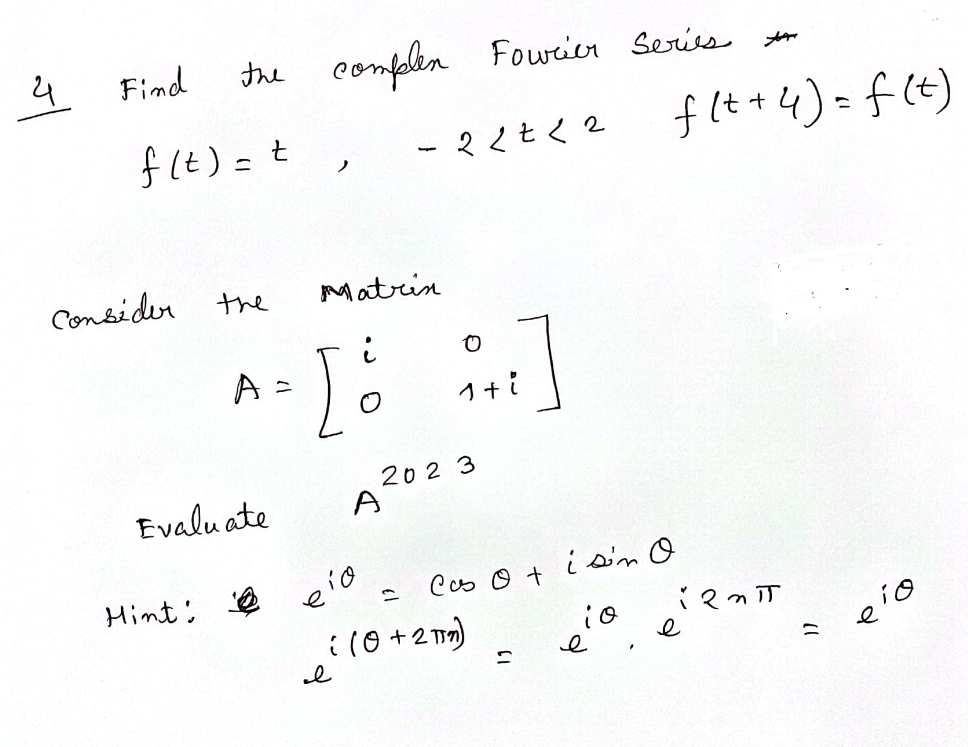 4 Find the complex Fourier Series
f(t) = t , -2 < t < 2 f(t+4) = f(t)
Consider the Matrix
A = [ i 0
0 1+i ]
Evaluate A^2023
Hint: e^iθ = cos θ + i sin θ
e^i(θ+2πn) = e^iθ . e^i2nπ = e^iθ